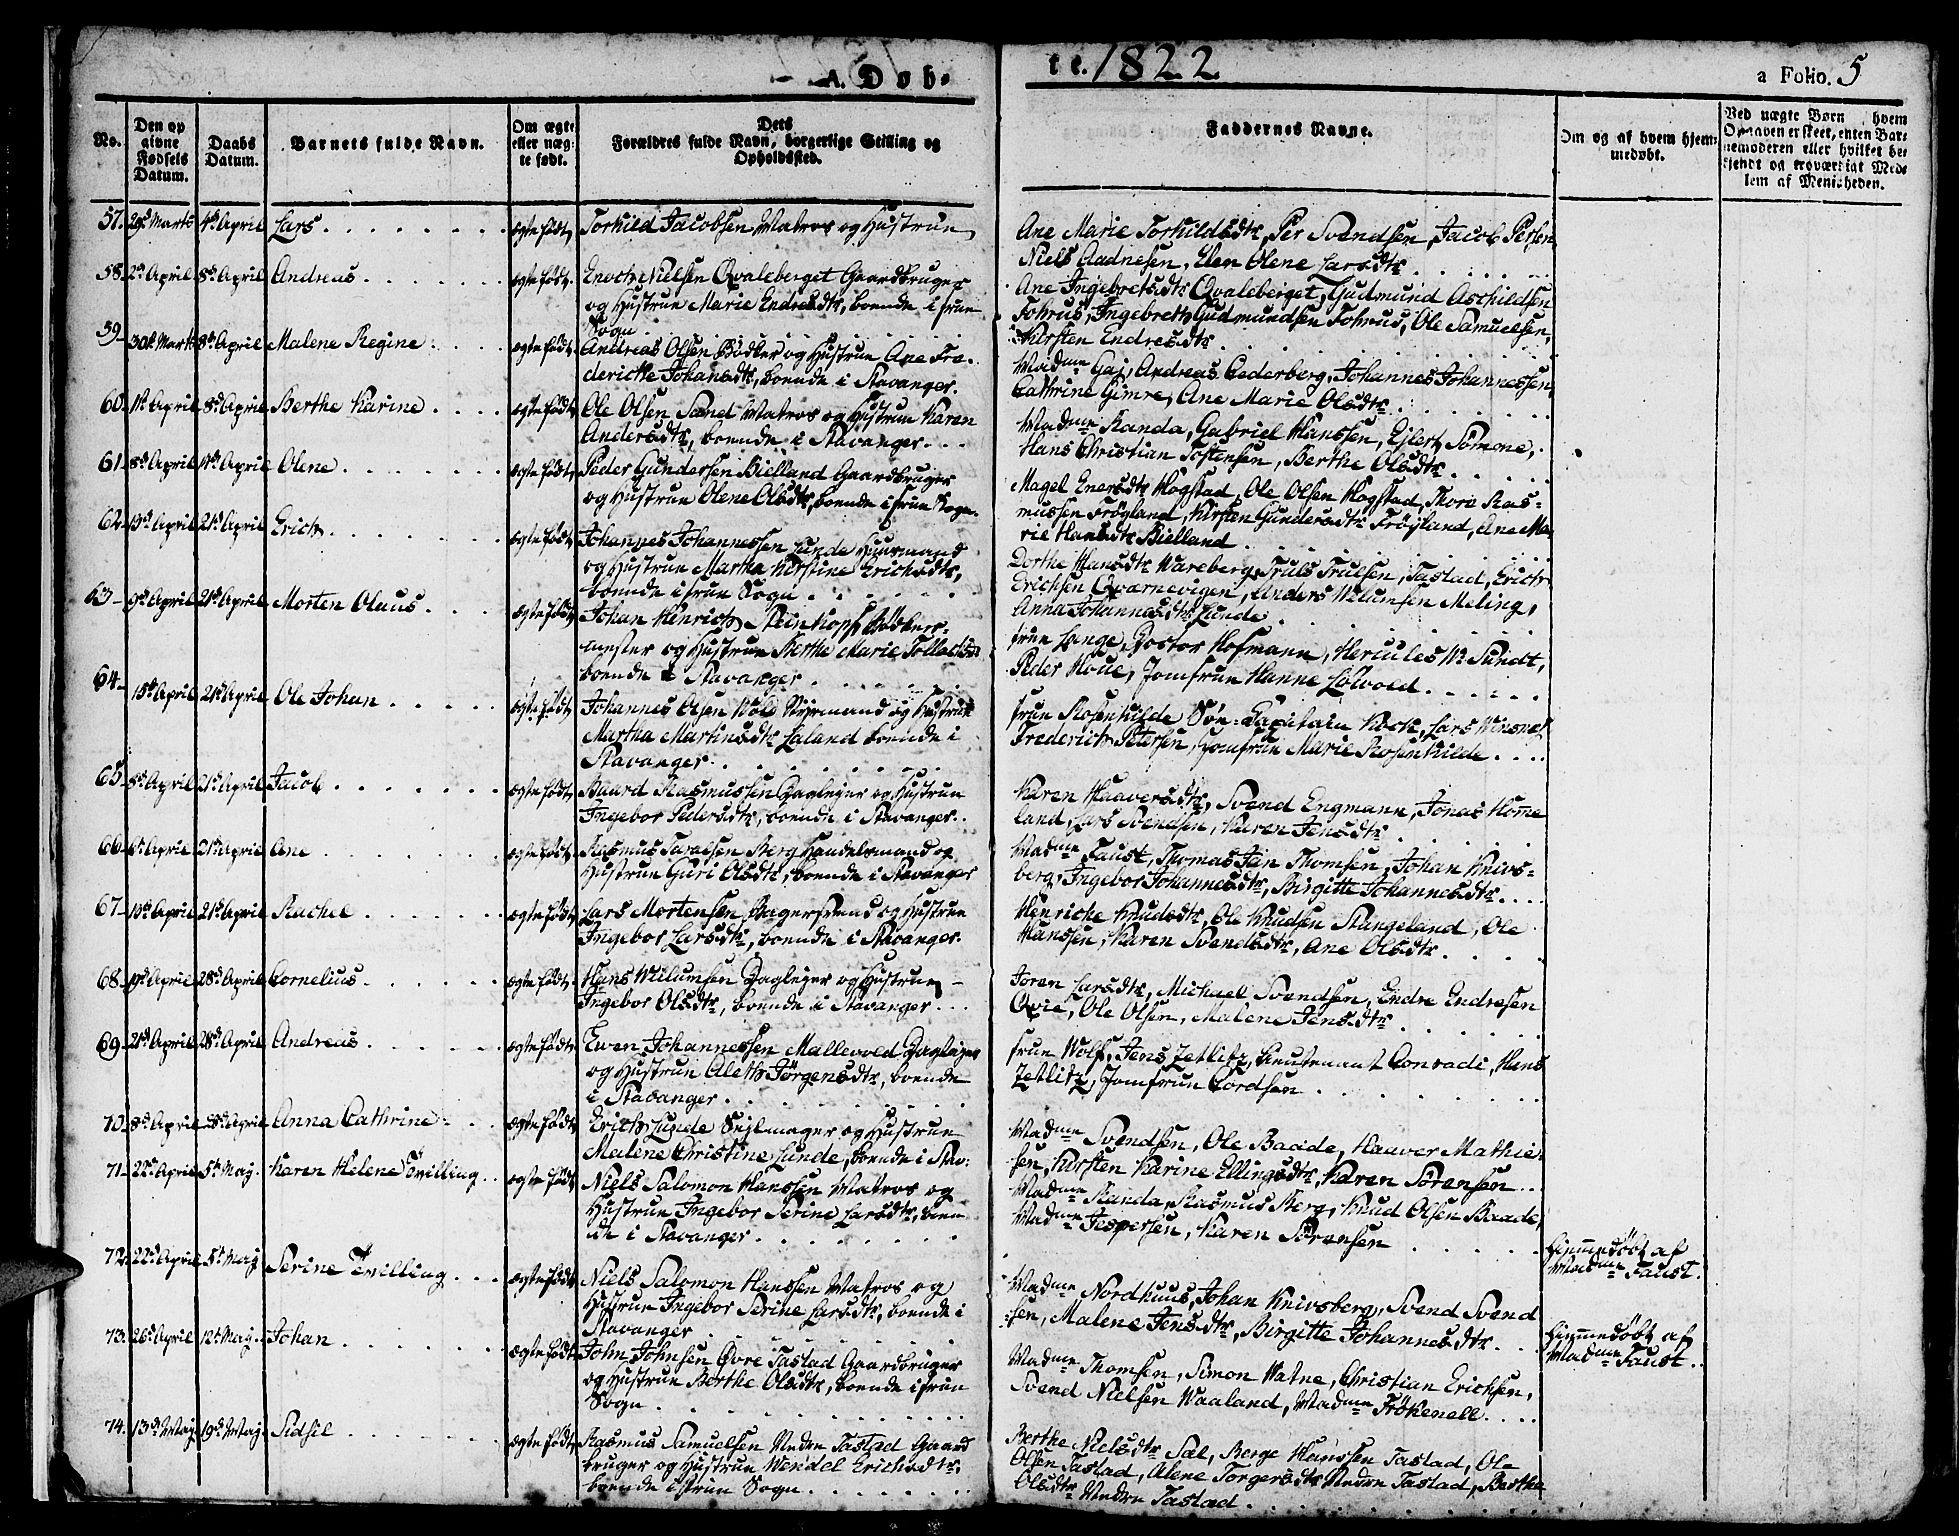 A. Døb-
te. 1822
a Folio. 5
No.
Den op
givne
Fødsels
Datum.
Daabs
Datum.
Barnets fulde Navn.
Om ægte
eller uæg-
te født.
Dets
Forældres fulde Navn, borgerlige Stilling og
Opholdssted.
Faddernes Navne.
Om og af hvem hjem-
medøbt.
Ved uægte Børn hvem
Opgaven er skeet, enten Bar-
nemoderen eller hvilket be-
kjendt og troværdigt Med-
lem af Menigheden.
57. 29d Marts 4d April Lars ægte født
Torkild Jacobsen Matros og Hustrue
Ane Marie Torkildsdtr, Per Svendsen, Jacob Persen
Niels Aadnesen, Elen Olene Larsdtr
58. 2d April 8d April Andreas ægte født
Enoch Nielsen Qvaleberget Gaardbruger
og Hustrue Marie Endresdtr, boende i frue
Sogn
Ane Ingebretsdtr Qvaleberget, Gudmund Aschildsen
Tohrus, Ingebreth Gudmundsen Tohrus, Ole Samuelsen,
Kirsten Endresdtr
59. 30d Marts 8d April Malene Regine ægte født
Andreas Olsen Bødker og Hustrue Ane Fre-
dericke Johansdtr, boende i Stavanger.
Madme Gaj, Andreas Cederberg, Johannes Johannessen,
Cathrine Gimre, Ane Marie Olsdtr
60. 1d April 8d April Berthe Karine ægte født
Ole Olsen Sand Matros og Hustrue Karen
Andersdtr, boende i Stavanger
Madme Randa, Gabriel Hanssen, Ejlert Somone,
Hans Christian Tostensen, Berthe Olsdtr
61. 8d April 14d April Olene ægte født
Peder Gundersen Bielland Gaardbruger
og Hustrue Olene Olsdtr, boende i frue Sogn
Magel Enersdtr Hogstad, Ole Olsen Hogstad, Thore Ras-
mussen Frøyland, Kirsten Gundersdtr Frøyland, Ane Ma-
rie Hansdtr Bielland
62. 13d April 21d April Erich ægte født
Johannes Johannessen Lunde Huusmand
og Hustrue Martha Kirstine Erichsdtr,
boende i frue Sogn
Dorthe Hansdtr Wareberg, Truls Trulsen, Tastad, Erich
Erichsen Qvarnevigen, Anders Wilumsen Meling,
Anna Johannesdtr Lunde
63. 9d April 21d April Morten Olaus ægte født
Johan Henrich Steinkopf Bødker-
mester og Hustrue Berthe Marie Tollachsen
boende i Stavanger
frue Lange, Doctor Hofmann, Hercules W. Sundt,
Peder Houe, Jomfrue Hanne Løwold
64. 15d April 21d April Ole Johan ægte født
Johannes Olsen Wold Styrmand og Hustrue
Martha Martinsdtr Laland boende i
Stavanger
frue Rosenkilde Søn, Capitain Kock, Lars Winsnes
Frederich Petersen, Jomfrue Marie Rosenkilde
65. 8d April 21d April Jacob ægte født
Baard Rasmussen Daglejer og Hustrue
Ingebor Pedersdtr, boende i Stavanger
Karen Haaversdtr, Svend Engmann, Jonas Home
land, Lars Svendsen, Karen Jensdtr
66. 6d April 21d April Ane ægte født
Rasmus Taraldsen Berg Handelsmand og
Hustrue Guri Olsdtr, boende i Stavanger
Madme Faust, Thomas Jan Thomsen, Johan Knivs-
berg, Ingebor Johannesdtr, Birgitte Johannesdtr
67. 13d April 21d April Rachel ægte født
Lars Mortensen Bagersvend og Hustrue
Ingebor Larsdtr, boende i Stavanger.
Henricke Knudsdtr, Ole Knudsen Stangeland, Ole
Hanssen, Karen Svendsdtr, Ane Olsdtr
68. 19d April 28d April Cornelius ægte født
Hans Wilumsen Dagleyer og Hustrue
Ingebor Olsdtr, boende i Stavanger
Joren Larsdtr, Michael Svendsen, Endre Endresen
Qvie, Ole Olsen, Malene Jensdtr
69. 21d April 28d April Andreas ægte født
Ewen Johannessen Mallevold Dagleyer
og Hustrue Aleth Jørgensdtr, boende
i Stavanger
frue Wolf, Jens Zetlitz, Lieutenant Conradi, Hans
Zetlitz, Jomfrue Cordsen
70. 8d April 28d April Anna Cathrine ægte født
Erich Lunde Sejlmager og Hustrue
Malene Christine Lunde, boende i Stav:
Madme Svendsen, Ole Baade, Haaver Mathie-
sen, Kirsten Karine Ellingsdtr, Karen Sørensen
71. 22d April 5t May. Karen Helene Tvilling ægte født
Niels Salomon Hanssen Matros og
Hustrue Ingebor Serine Larsdtr, boen
de i Stavanger
Madme Randa, Rasmus Berg, Knud Olsen Baade,
Madme Jespersen, Karen Sørensen
Hiemmedøbt af
Madme Faust.
72. 22d April 5t May Serine Tvilling ægte født
Niels Salomon Hanssen Matros og
Hustrue Ingebor Serine Larsdtr, boende i
Stavanger
Madme Nordhuus, Johan Knivsberg, Svend Svend
sen, Malene Jensdtr, Birgitte Johannesdtr
Hiemmedøbt af
Madme Faust.
73. 26d April 12t May. Johan ægte født
John Johnsen Øvre Tastad Gaardbruger
og Hustrue Berthe Olsdtr, boende i frue
Sogn
Madme Thomsen, Simon Watne, Christian Erichsen,
Svend Nielsen Waaland, Madme Frökenell
74. 13d May 19d May. Sidsil ægte født
Rasmus Samuelsen Nedre Tastad Gaard
bruger og Hustrue Wendel Erichsdtr,
boende i frue Sogn
Berthe Nielsdtr Sæl, Berge Hanssen Tastad, Ole
Olsen Tastad, Alene Torgersdtr Nedre Tastad, Berthe
Olsdtr Nedre Tastad